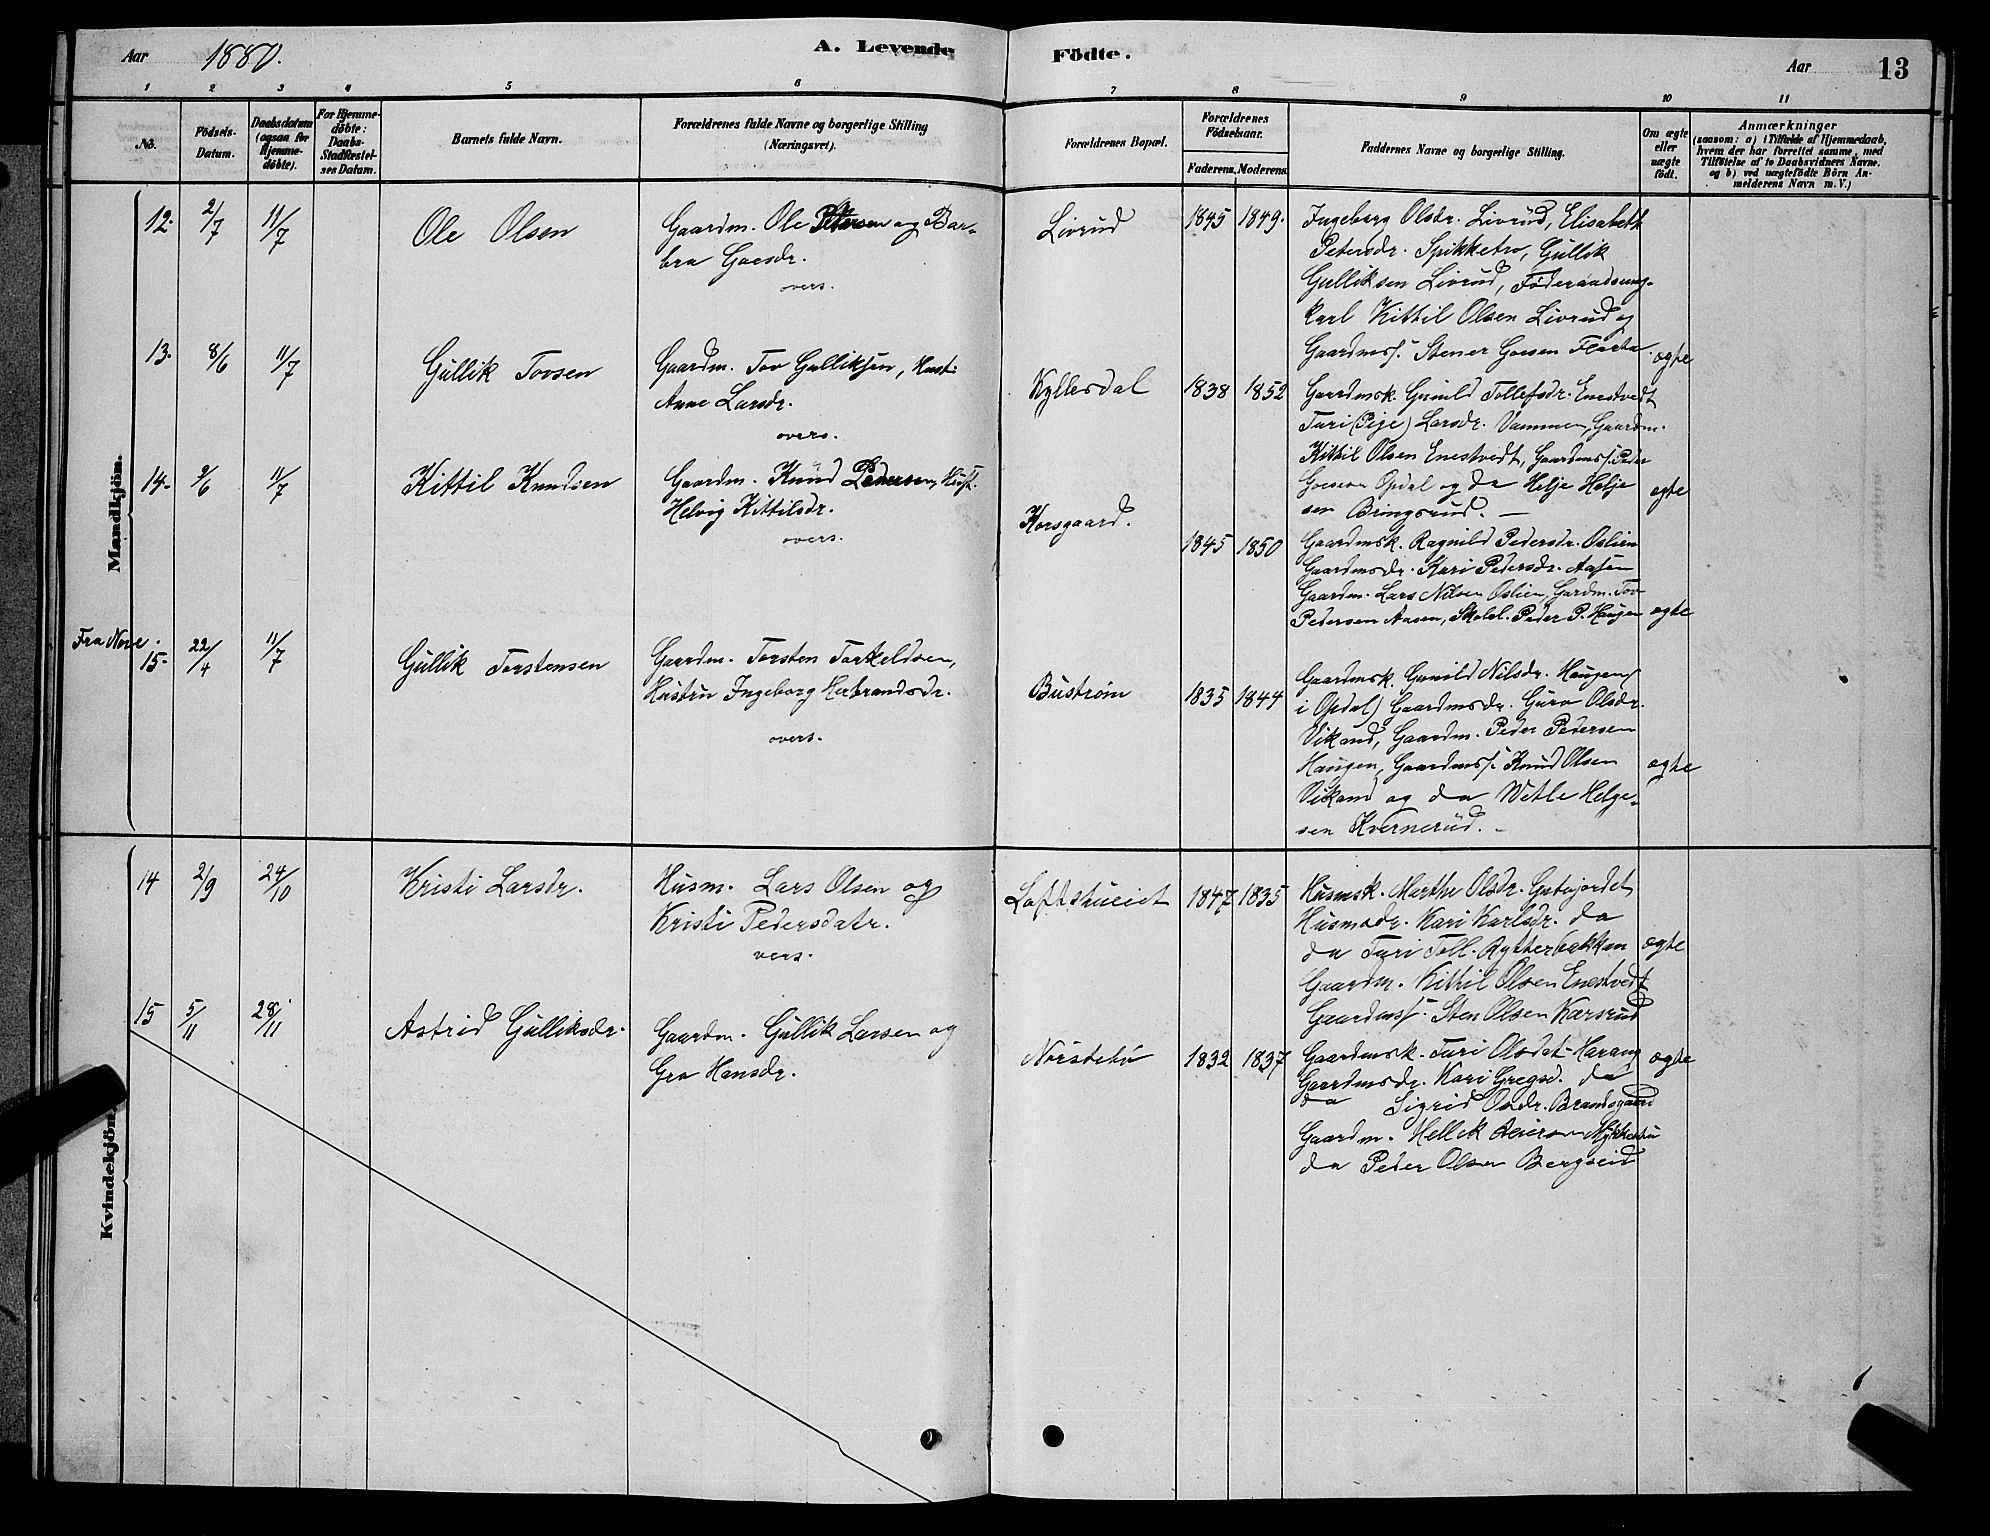 Aar 1880. A. Levende Födte. Aar 13
1 2 3 4 5 6 7 8 9 10 11
No.
Födsels-Datum.
Daabsdatum (ogsaa for Hjemmedöbte).
For Hjemmedöbte: Daabs-Stadfæstelses Datum.
Barnets fulde Navn.
Forældrenes fulde Navne og borgerlige Stilling (Næringsvei).
Forældrenes Bopæl.
Forældrenes Födselsaar.
Faderens. Moderens.
Faddernes Navne og borgerlige Stilling.
Om ægte eller uægte födt.
Anmærkninger
(saasom: a) i Tilfælde af Hjemmedaab,
hvem der har forrettet samme, med
Tilföielse af to Daabsvidners Navne.
og b) ved uægtefödte Börn An-
melderens Navn m. V.)
Mandkjön.
12. 2/7 11/7 Ole Olsen
Gaardm. Ole Petersen og Bar-
bra Goesdr.
overs.
Livrud 1845 1849.
Ingeborg Olsdr. Livrud, Elisabeth
Petersdr. Spikketro, Gullik
Gulliksen Livrud, Föderaadsung-
karl Kittil Olsen Livrud og
Gaardms/. Stener Goesen Flaata
ægte
13. 8/6 11/7 Gullik Tovsen
Gaardm. Tov Gulliksen, Hust:
Anne Larsdr.
overs.
Kyllesdal 1838 1852
Gaardmsk. Gunild Tollefsdr. Enestvedt
Turi (Pige) Larsdr. Vammen, Gaardm.
Kittil Olsen Enestvedt, Gaardmss/. Peder
Goesen Opdal og da Helje Helje
sen Bringsrud. —
ægte
14. 2/6 11/7 Kittil Knudsen
Gaardm. Knud Pedersen, Hust.
Helvig Kittilsdr.
overs.
Korsgaard. 1845 1850
Gaardmsk. Ragnild Pedersdr. Oslien
Gaardmsdr. Kari Pedersdr. Aasen
Gaardm. Lars Nilsen Oslien, Gardm. Tov
Pedersen Aasen, Skolel. Peder P. Haugen
ægte
Fra Nore.
15. 22/4 11/7 Gullik Torstensen
Gaardm. Torsten Torkeldsen,
Hustru Ingeborg Herbrandsdr.
overs.
Bustrøm 1835 1844
Gaardmsk. Gunild Nilsdr. Haugen
i Opdal) Gaardmsdr. Guro Olsdr.
Vikand, Gaardm. Peder Pedersen
Haugen, Gaardms/. Knud Olsen
Vikand og da Wetle Helge-
sen Kvernerud. —
ægte
Kvindekjön.
14 2/9 24/10 Kristi Larsdr.
Husm. Lars Olsen og
Kristi Pedersdatr.
vers.
Loftstueiet 1847 1835
Husmsk. Marthe Olsdr. Gptujordet
Husmsdr. Kari Karlsdr. da
da Turi Toll. Rytterbakken
Gaardm. Kittil Olsen Enestvedt
Gaardms/. Sten Olsen Kærsrud
ægte
15 5/11 28/11 Astrid Gulliksdr.
Gaardm. Gullik Larsen og
Gro Hansdr.
Norstebø 1832 1837
Gaardmsk. Turi Olsdat. Harang
Gaardmsdr. Kari Gregsd. da
da Sigrid Osdr. Brandsgaard
Gaardm. Hellik Reiersen Mykkestu
da Peder Olsen Bergseid
ægte